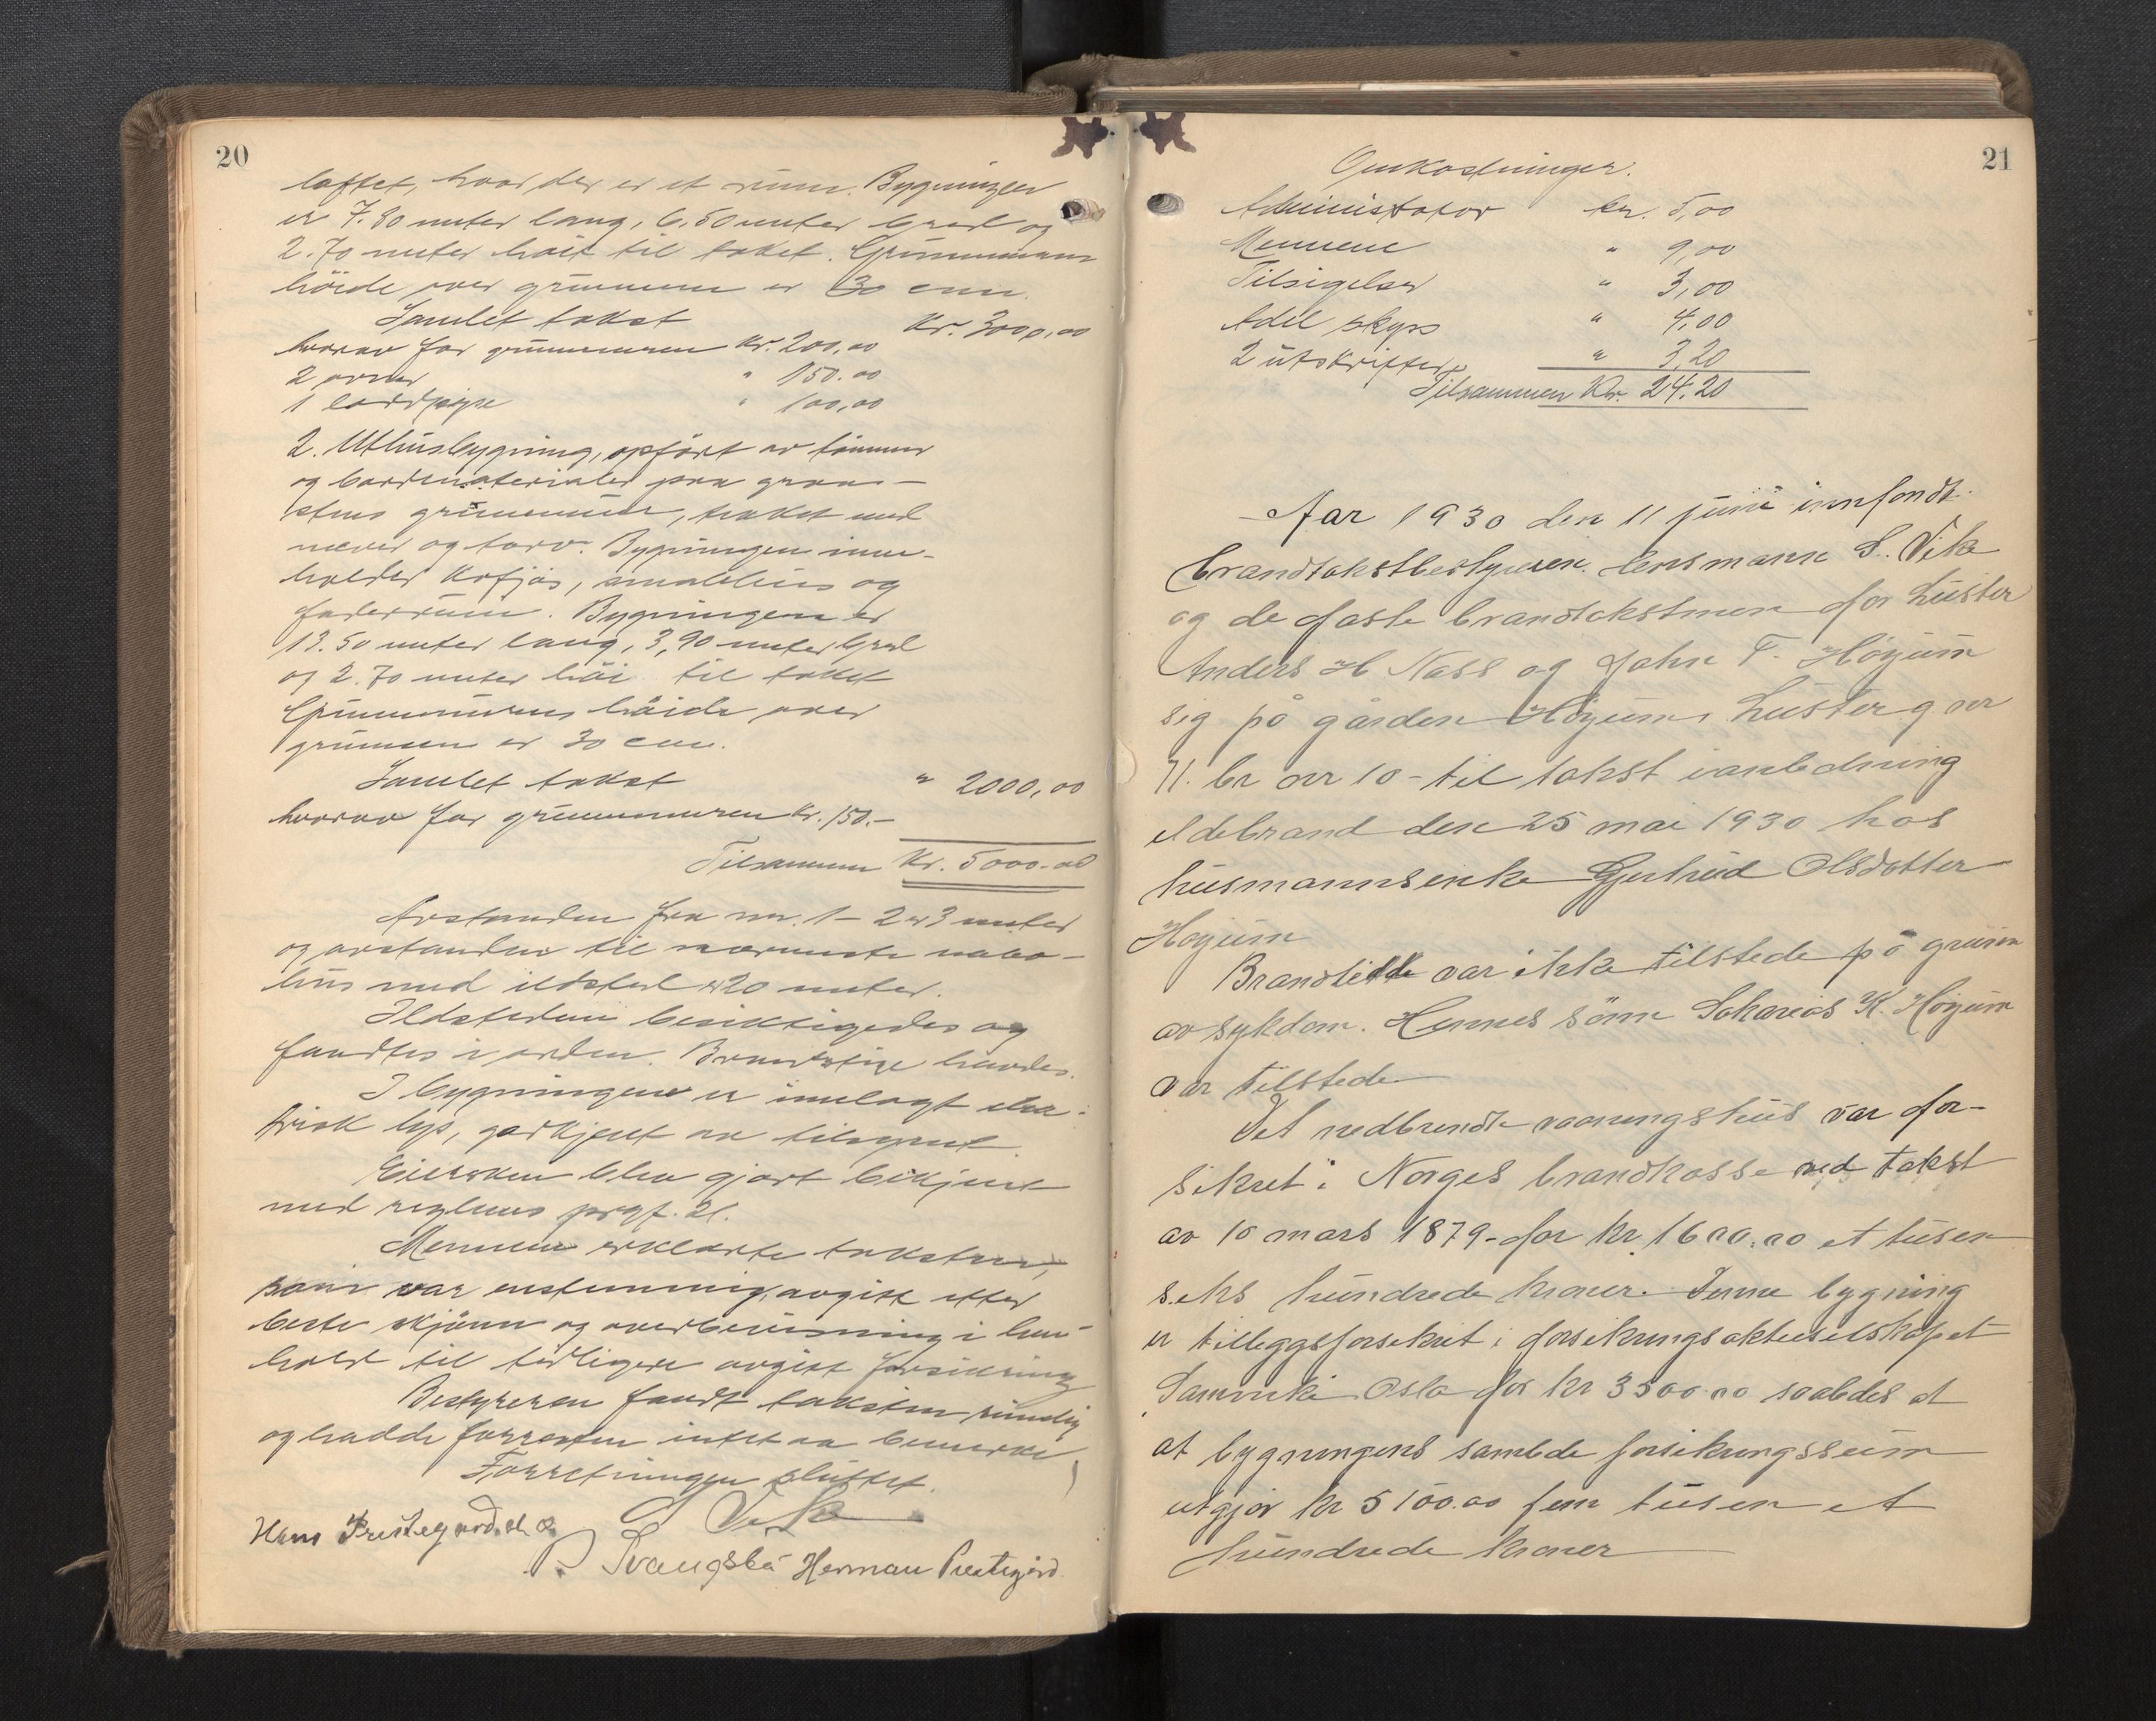 20
loftet, hvor der er et rum. Bygningen
er 7.80 meter lang, 6,50 meter bred og
2.70 meter høit til taket. Grunnmurens
høide over grunnen er 30 cm.
Samlet takst Kr. 3000,00
hvorav for grunnmuren Kr. 200,00
2 ovner " 150.00
1 pipe " 100,00
2. Uthusbygning, opført av tømmer
og bordmaterialer paa graa-
stens grunnmur, tækket med
never og torv. Bygningen inne-
holder kofjøs, smalehus og
foderrum. Bygningen er
13.50 meter lang, 3,90 meter bred
og 2.70 meter høi til taket
Grunnmurens høide over
grunnen er 30 cm.
Samlet takst " 2000,00
hvorav for grunnmuren Kr. 150.-
Tilsammen Kr. 5000.00
Avstanden fra nr. 1 - 2 er 3 meter
og avstanden til nærmeste nabo-
hus med ildsted er 20 meter.
Ildstedene besiktigedes og
fandtes i orden. Brandstige havdes.
I bygningene er innlagt elek-
trisk lys, godkjent av tilsynet.
Eiersken blev gjort bekjent
med reglenes prgf. 21.
Mennene erklærte taksten,
som var enstemmig, avgitt efter
beste skjønn og overbevisning i hen-
hold til tidligere avgitt forsikring
Bestyreren fandt taksten rimelig
og hadde forresten intet aa bemerke
Forretningen sluttet.
S Vik
Hans Prestegard.
P. Svangsbø Herman Prestegård.
21
Omkostninger.
Administrator kr. 5,00
Mennene " 9,00
Tilsigelser " 3,00
Adel skyss " 4,00
2 utskrifter " 3,20
Tilsammen Kr. 24,20
Aar 1930 den 11 juni innfandt
brandtakstbestyreren. lensmann S. Vik
og de faste brandtakstmen for Luster
Anders H Nass og John T. Høyum
sig på gården Høyum, Luster g nr
71. br nr 10 - til takst i anledning
ildebrand den 25 mai 1930 hos
husmannsenke Gjertrud Olsdotter
Høyum
Brandlidte var ikke tilstede på grunn
av sykdom. Hennes sønn Sakarias K. Høyum
var tilstede
Det nedbrendte vaaningshus var for-
sikret i Norges brandkasse ved takst
av 10 mars 1879 - for kr. 1600.00 et tusen
seks hundrede kroner. Denne bygning
er tilleggsforsikret i forsikringsaktieselskapet
Samvirke Oslo for kr 3500.00 saaledes at
at bygningens samlede forsikringssum
utgjør kr 5100.00 fem tusen et
hundrede kroner